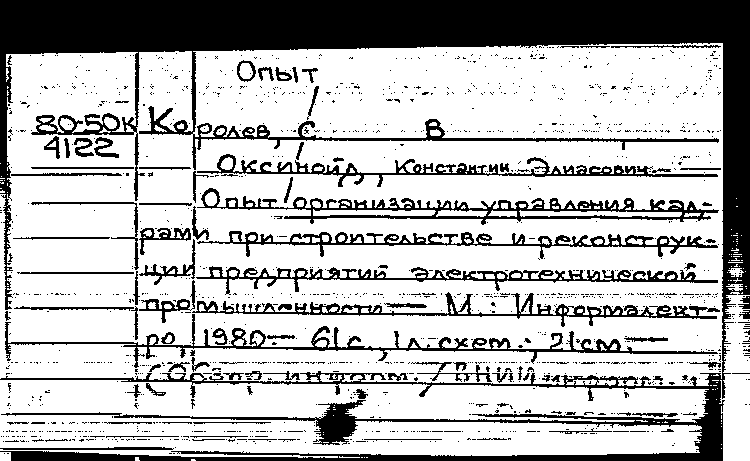 Опыт
80-50к Королев, С В
4122
Оксиной​д, Константин Элиасович
Опыт организации управления кад-
рами при строительстве и реконструк-
ции предприятий электротехнической
промышленности — М.: Информэлект-
ро, 1980.— 61 с., 1 л. схем.; 21 см. —
(Обзор. информ. / ВНИИ информ. и